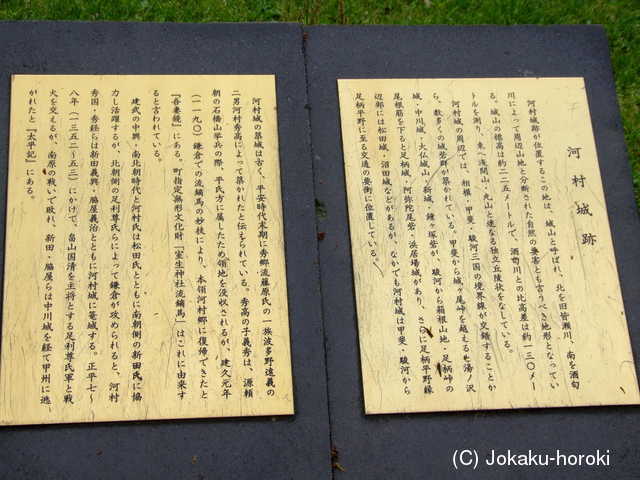 河村城跡
河村城跡が位置するこの地は、城山と呼ばれ、北を旧皆瀬川、南を酒匂
川によって周辺山地と分断された自然の要害とも言うべき地形となってい
る。城山の標高は約二二五メートルで、酒匂川との比高差は約一三〇メー
トルを測り、東へ浅間山・丸山と連なる独立丘陵状をなしている。
河村城の周辺では、相模・甲斐・駿河三国の境界線が交錯することか
ら、数多くの城砦群が築かれている。甲斐から城ヶ尾峠を越えると湯ノ沢
城・中川城・大仏城山・新城・鐘ヶ塚砦が、駿河から箱根山地・足柄峠の
尾根筋を下ると足柄城・阿弥陀尾砦・浜居場城があり、さらに足柄平野縁
辺部には松田城・沼田城などがあるが、なかでも河村城は甲斐・駿河から
足柄平野に至る交通の要衝に位置している。
河村城の築城は古く、平安時代末期に秀郷流藤原氏の一族波多野遠義の
二男河村秀高によって築かれたと伝えられている。秀高の子義秀は、源頼
朝の石橋山挙兵の際、平氏方に属したため領地を没収されるが、建久元年
(一一九〇)鎌倉での流鏑馬の妙技により、本領河村郷に復帰できたと
『吾妻鏡』にある。町指定無形文化財「室生神社流鏑馬」はこれに由来す
ると言われている。
建武の中興・南北朝時代と河村氏は松田氏とともに南朝側の新田氏に協
力し活躍するが、北朝側の足利尊氏らによって鎌倉が攻められると、河村
秀国・秀経らは新田義興・脇屋義治とともに河村城に篭城する。正平七〜
八年(一三五二〜五三)にかけて、畠山国清を主将とする足利尊氏軍と戦
火を交えるが、南原の戦いで敗れ、新田・脇屋らは中川城を経て甲州に逃
がれたと『太平記』にある。
(C) Jokaku-horoki